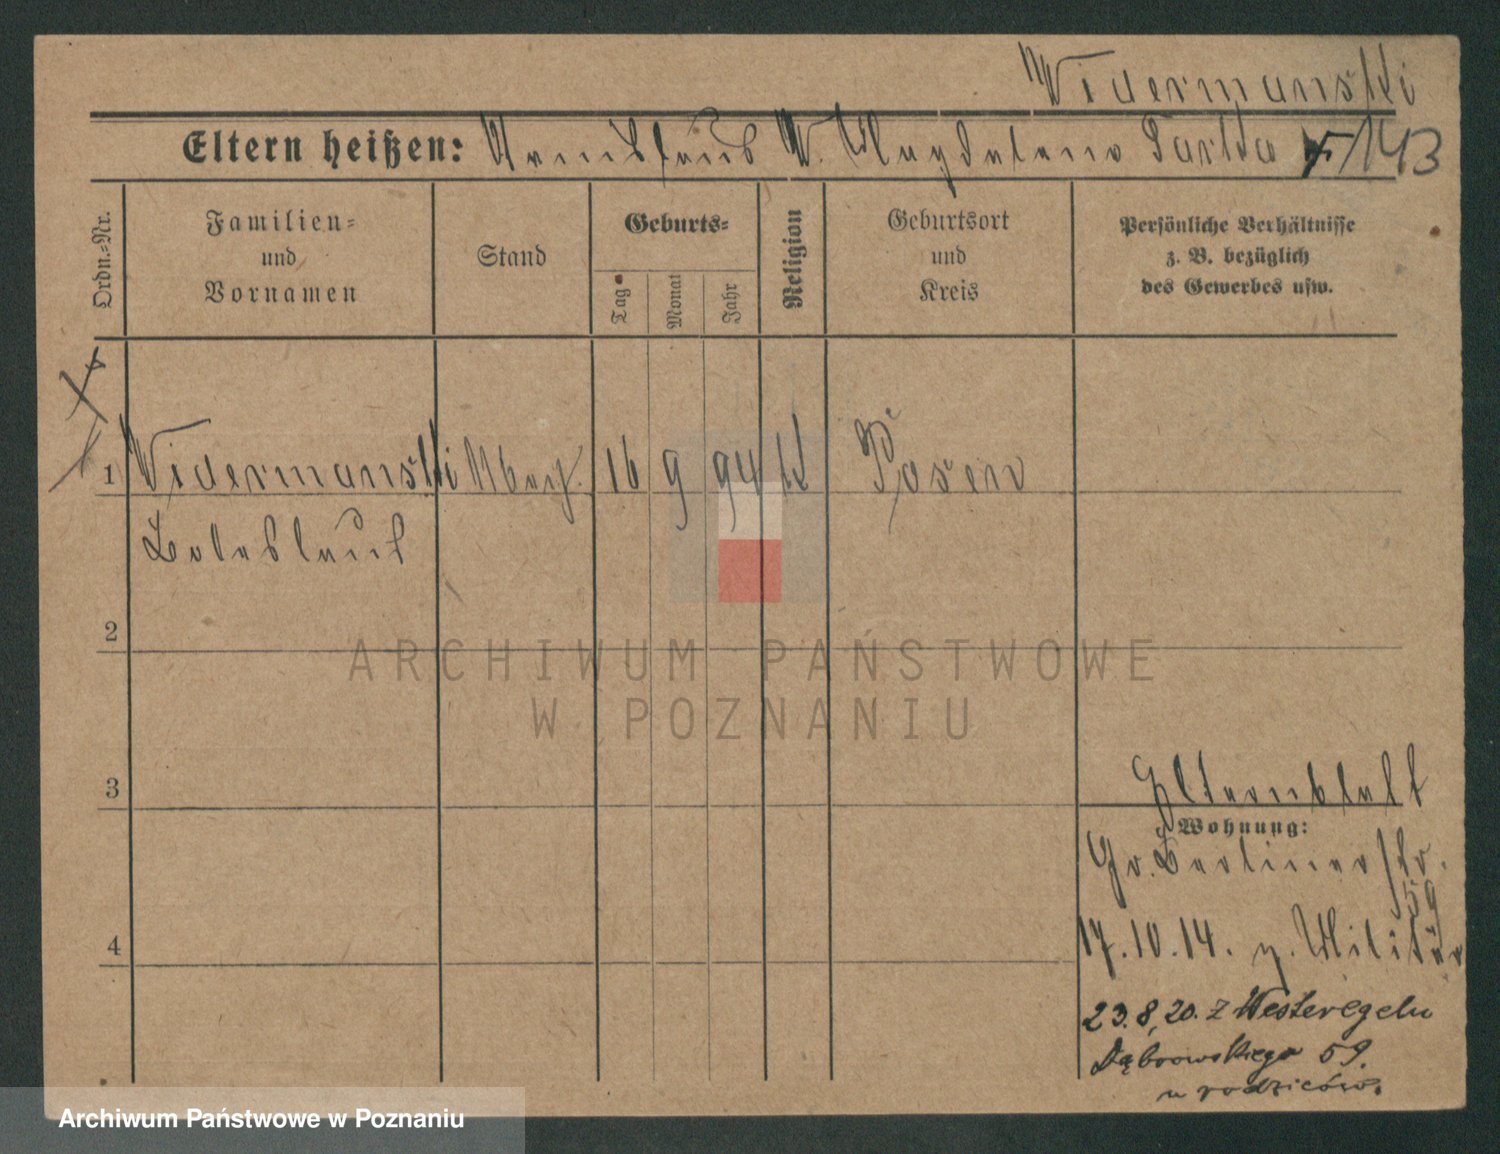 Widermanski
Eltern heißen: Stanislaus W. Magdalena 143
Ordn.-Nr.
Familien-
und
Vornamen
Stand
Geburts-
Tag
Monat
Jahr
Religion
Geburtsort
und
Kreis
Persönliche Verhältnisse
z. B. bezüglich
des Gewerbes usw.
1 Widermanski 16 9 94 K Posen
Boleslaus
2
ARCHIWUM PAŃSTWOWE
W POZNANIU
3
Elternblatt
Wohnung:
Gr. Berlinerstr.
59
4
17.10.14. z. Militär
23.8.20. z Westeregeln
Dąbrowskiego 59.
u rodziców.
Archiwum Państwowe w Poznaniu